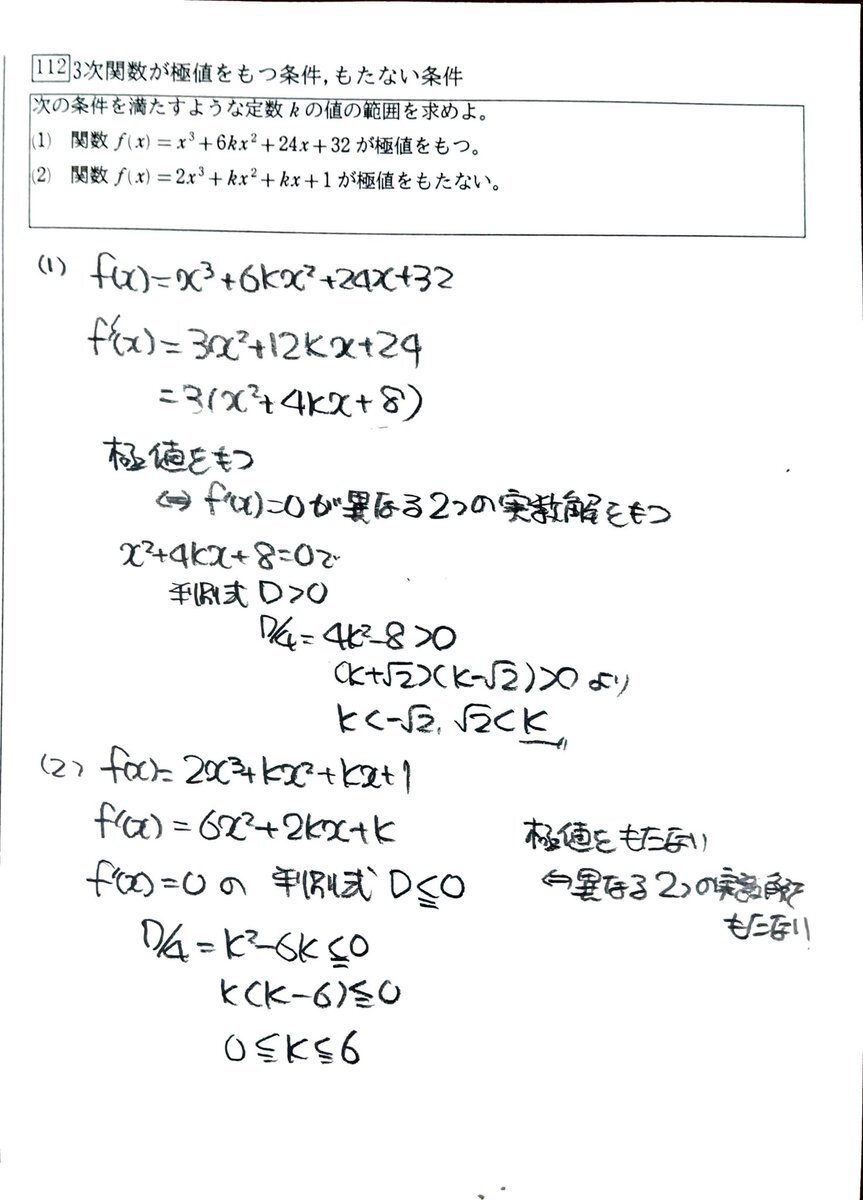 112 3次関数が極値をもつ条件,もたない条件
次の条件を満たすような定数 k の値の範囲を求めよ。
(1) 関数 f(x)=x³+6kx²+24x+32 が極値をもつ。
(2) 関数 f(x)=2x³+kx²+kx+1 が極値をもたない。
(1) f(x)=x³+6kx²+24x+32
f'(x)=3x²+12kx+24
=3(x²+4kx+8)
極値をもつ
⇔ f'(x)=0が異なる2つの実数解をもつ
x²+4kx+8=0で
判別式 D>0
D/4=4k²-8>0
(k+√2)(k-√2)>0 より
k<-√2, √2<k
(2) f(x)=2x³+kx²+kx+1
f'(x)=6x²+2kx+k
f'(x)=0 の 判別式 D≦0
D/4=k²-6k≦0
k(k-6)≦0
0≦k≦6
極値をもたない
⇔異なる2つの実数解を
もたない